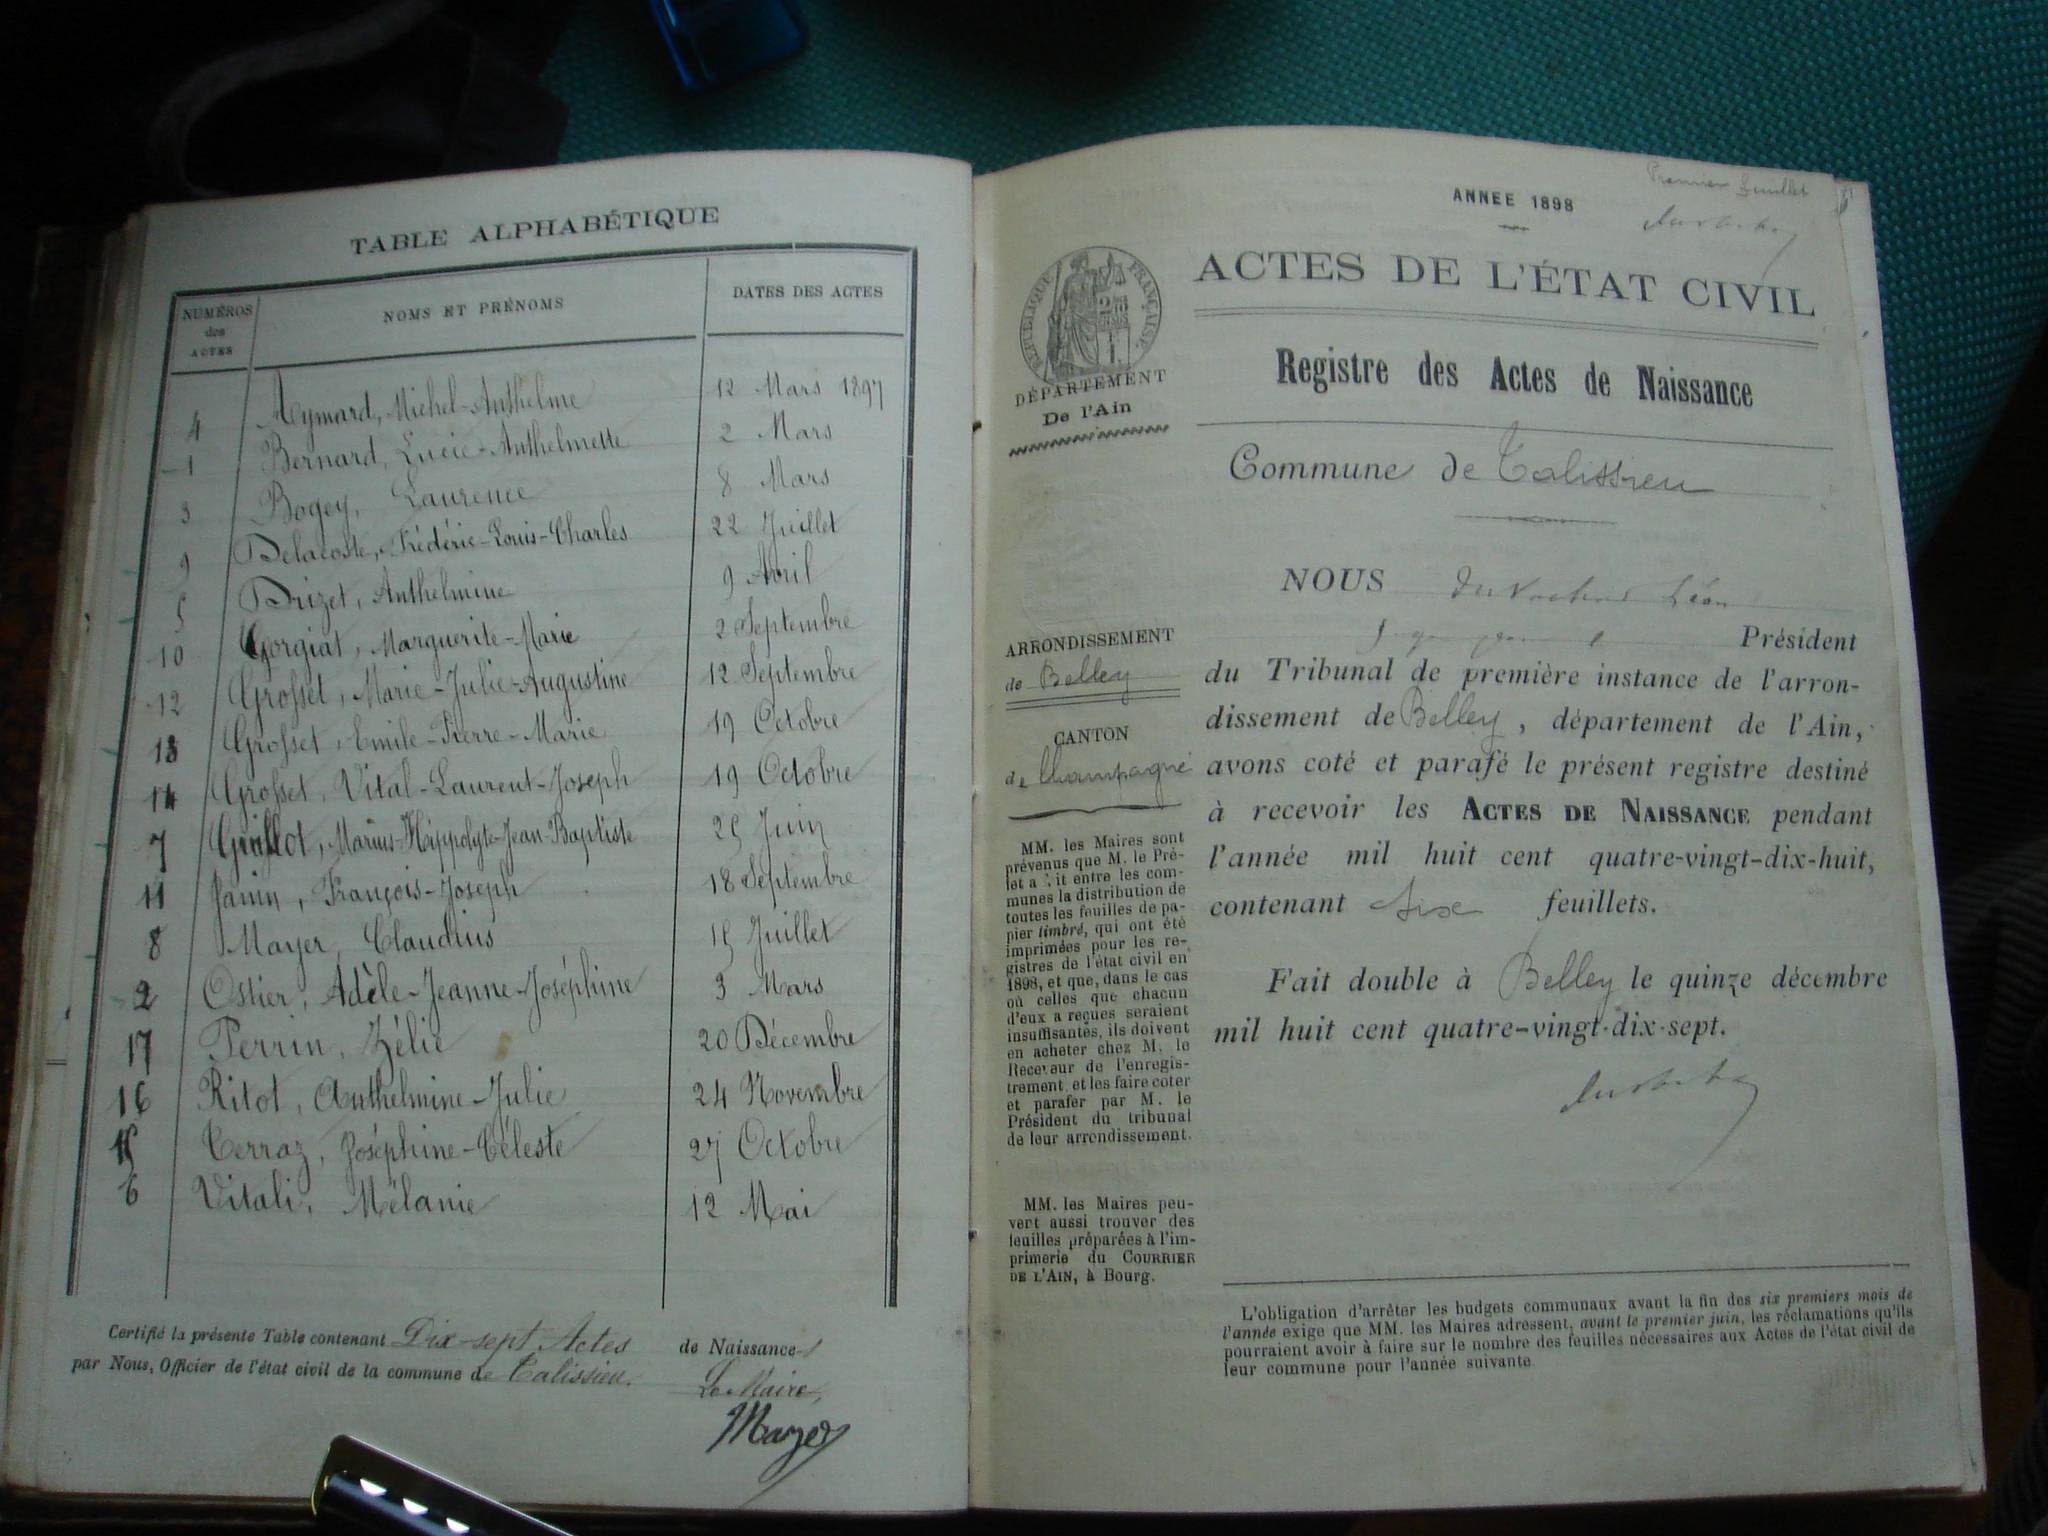 TABLE ALPHABÉTIQUE
NUMÉROS des ACTES NOMS ET PRÉNOMS DATES DES ACTES
4 Aymard, Michel-Anthelme 12 Mars 1897
1 Bernard, Lucie-Anthelmette 2 Mars
3 Bogey, Laurence 8 Mars
9 Delacoste, Frédéric-Louis-Charles 22 Juillet
5 Drizet, Anthelmine 9 Avril
10 Gorgiat, Marguerite-Marie 2 Septembre
12 Grosset, Marie-Julie-Augustine 12 Septembre
13 Grosset, Emile-Pierre-Marie 19 Octobre
14 Grosset, Vital-Laurent-Joseph 19 Octobre
7 Guillot, Marius-Hippolyte-Jean-Baptiste 25 Juin
11 Janin, François-Joseph 18 Septembre
8 Mayer, Claudius 15 Juillet
2 Ostier, Adèle-Jeanne-Joséphine 3 Mars
17 Perrin, Zélie 20 Décembre
16 Ritot, Anthelmine-Julie 24 Novembre
15 Terraz, Joséphine-Céleste 27 Octobre
6 Vitali, Mélanie 12 Mai
Certifié la présente Table contenant Dix-sept Actes de Naissance
par Nous, Officier de l'état civil de la commune de Talissieu.
Le Maire,
Mayer
Premier feuillet
ANNEE 1898
RÉPUBLIQUE FRANÇAISE
ACTES DE L'ÉTAT CIVIL
DÉPARTEMENT
De l'Ain
Registre des Actes de Naissance
Commune de Talissieu
NOUS Léon
Président
du Tribunal de première instance de l'arron-
dissement de Belley, département de l'Ain,
avons coté et parafé le présent registre destiné
à recevoir les ACTES DE NAISSANCE pendant
l'année mil huit cent quatre-vingt-dix-huit,
contenant Six feuillets.
Fait double à Belley le quinze décembre
mil huit cent quatre-vingt-dix-sept.
ARRONDISSEMENT
de Belley
CANTON
de Champagne
MM. les Maires sont
prévenus que M. le Pré-
fet a fait entre les com-
munes la distribution de
toutes les feuilles de pa-
pier timbré, qui ont été
imprimées pour les re-
gistres de l'état civil en
1898, et que, dans le cas
où celles que chacun
d'eux a reçues seraient
insuffisantes, ils doivent
en acheter chez M. le
Receveur de l'enregis-
trement et les faire coter
et parafer par M. le
Président du tribunal
de leur arrondissement.
MM. les Maires peu-
vent aussi trouver des
feuilles préparées à l'im-
primerie du COURRIER
DE L'AIN, à Bourg.
L'obligation d'arrêter les budgets communaux avant la fin des six premiers mois de
l'année exige que MM. les Maires adressent, avant le premier juin, les réclamations qu'ils
pourraient avoir à faire sur le nombre des feuilles nécessaires aux Actes de l'état civil de
leur commune pour l'année suivante